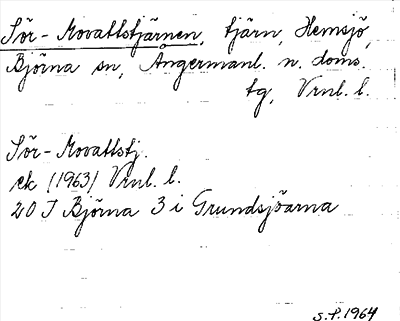 Sör-Movattstjärnen, tjärn, Hemsjö,
Björna sn, Ångermanl. n. doms.
tg, Vrnl. l.
Sör-Movattstj.
ek (1963) Vrnl. l.
20 J Björna 3 i Grundsjöarna
S.P. 1964